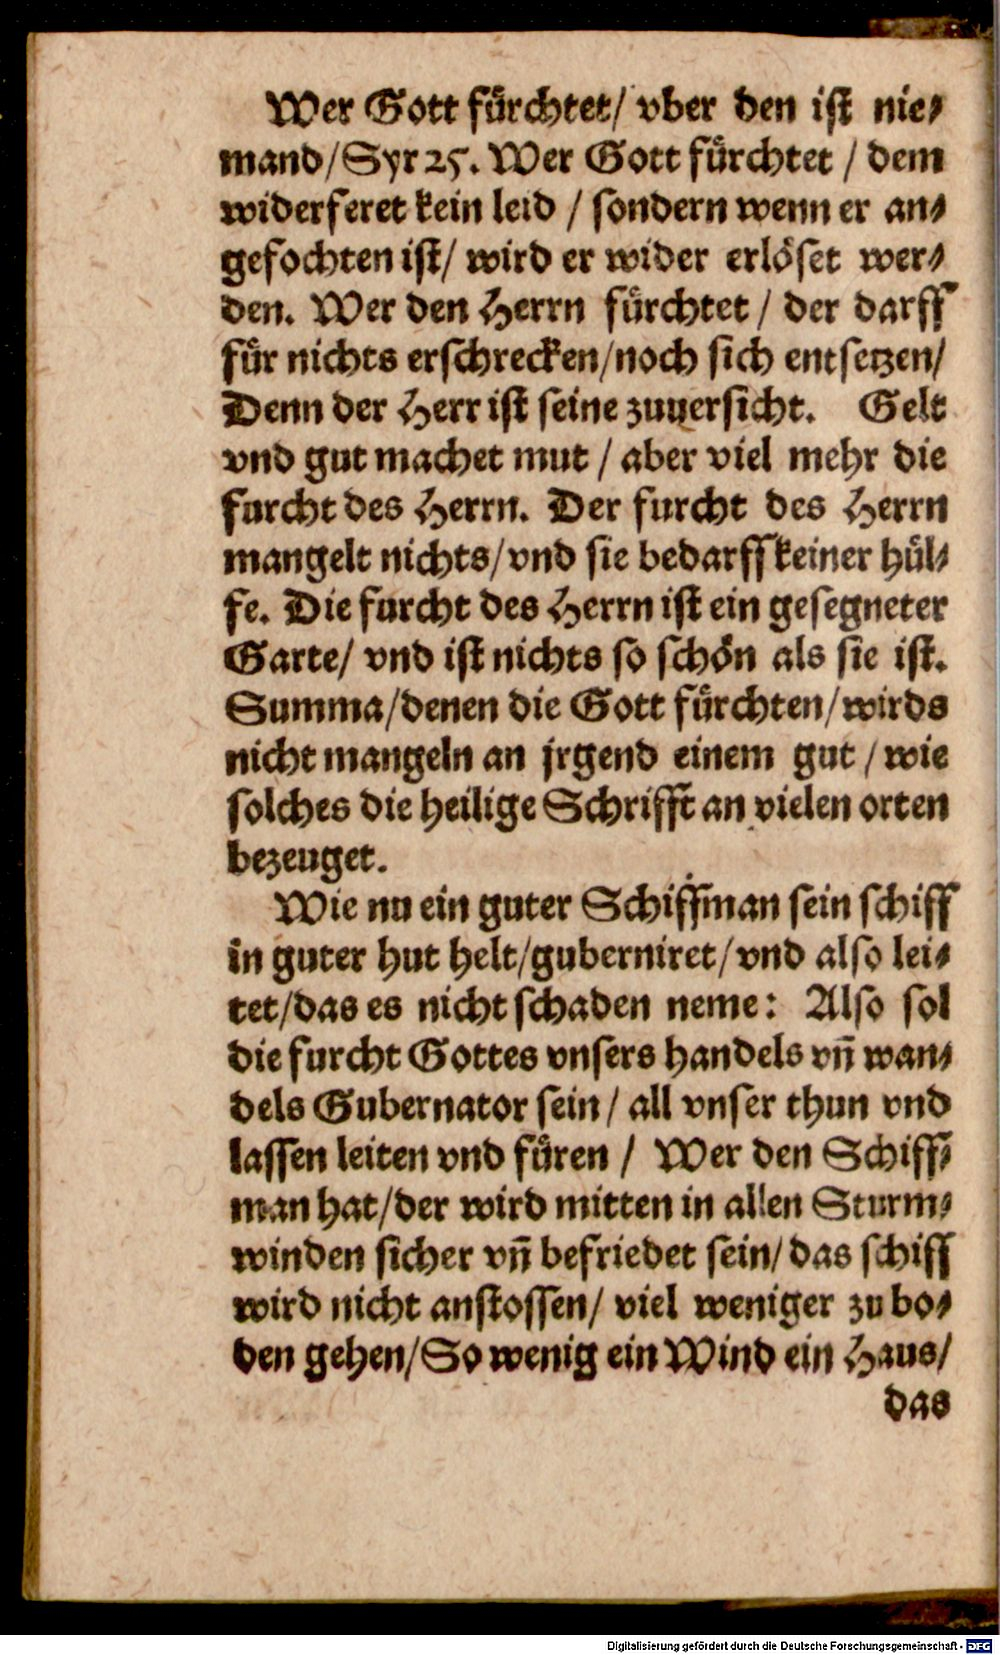 Wer Gott fürchtet/ vber den ist nie-
mand/Syr 25. Wer Gott fürchtet / dem
widerferet kein leid / sondern wenn er an-
gefochten ist/ wird er wider erlöset wer-
den. Wer den Herrn fürchtet / der darff
für nichts erschrecken/noch sich entsetzen/
Denn der Herr ist seine zuuersicht. Gelt
vnd gut machet mut / aber viel mehr die
furcht des Herrn. Der furcht des Herrn
mangelt nichts/vnd sie bedarff keiner hül-
fe. Die furcht des Herrn ist ein gesegneter
Garte/ vnd ist nichts so schön als sie ist.
Summa/denen die Gott fürchten/wirds
nicht mangeln an jrgend einem gut / wie
solches die heilige Schrifft an vielen orten
bezeuget.
Wie nu ein guter Schiffman sein schiff
in guter hut helt/guberniret/vnd also lei-
tet/das es nicht schaden neme: Also sol
die furcht Gottes vnsers handels vñ wan-
dels Gubernator sein/ all vnser thun vnd
lassen leiten vnd füren / Wer den Schiff-
man hat/der wird mitten in allen Sturm-
winden sicher vñ befriedet sein/das schiff
wird nicht anstossen/ viel weniger zu bo-
den gehen/So wenig ein Wind ein Haus/
das
Digitalisierung gefördert durch die Deutsche Forschungsgemeinschaft - DFG